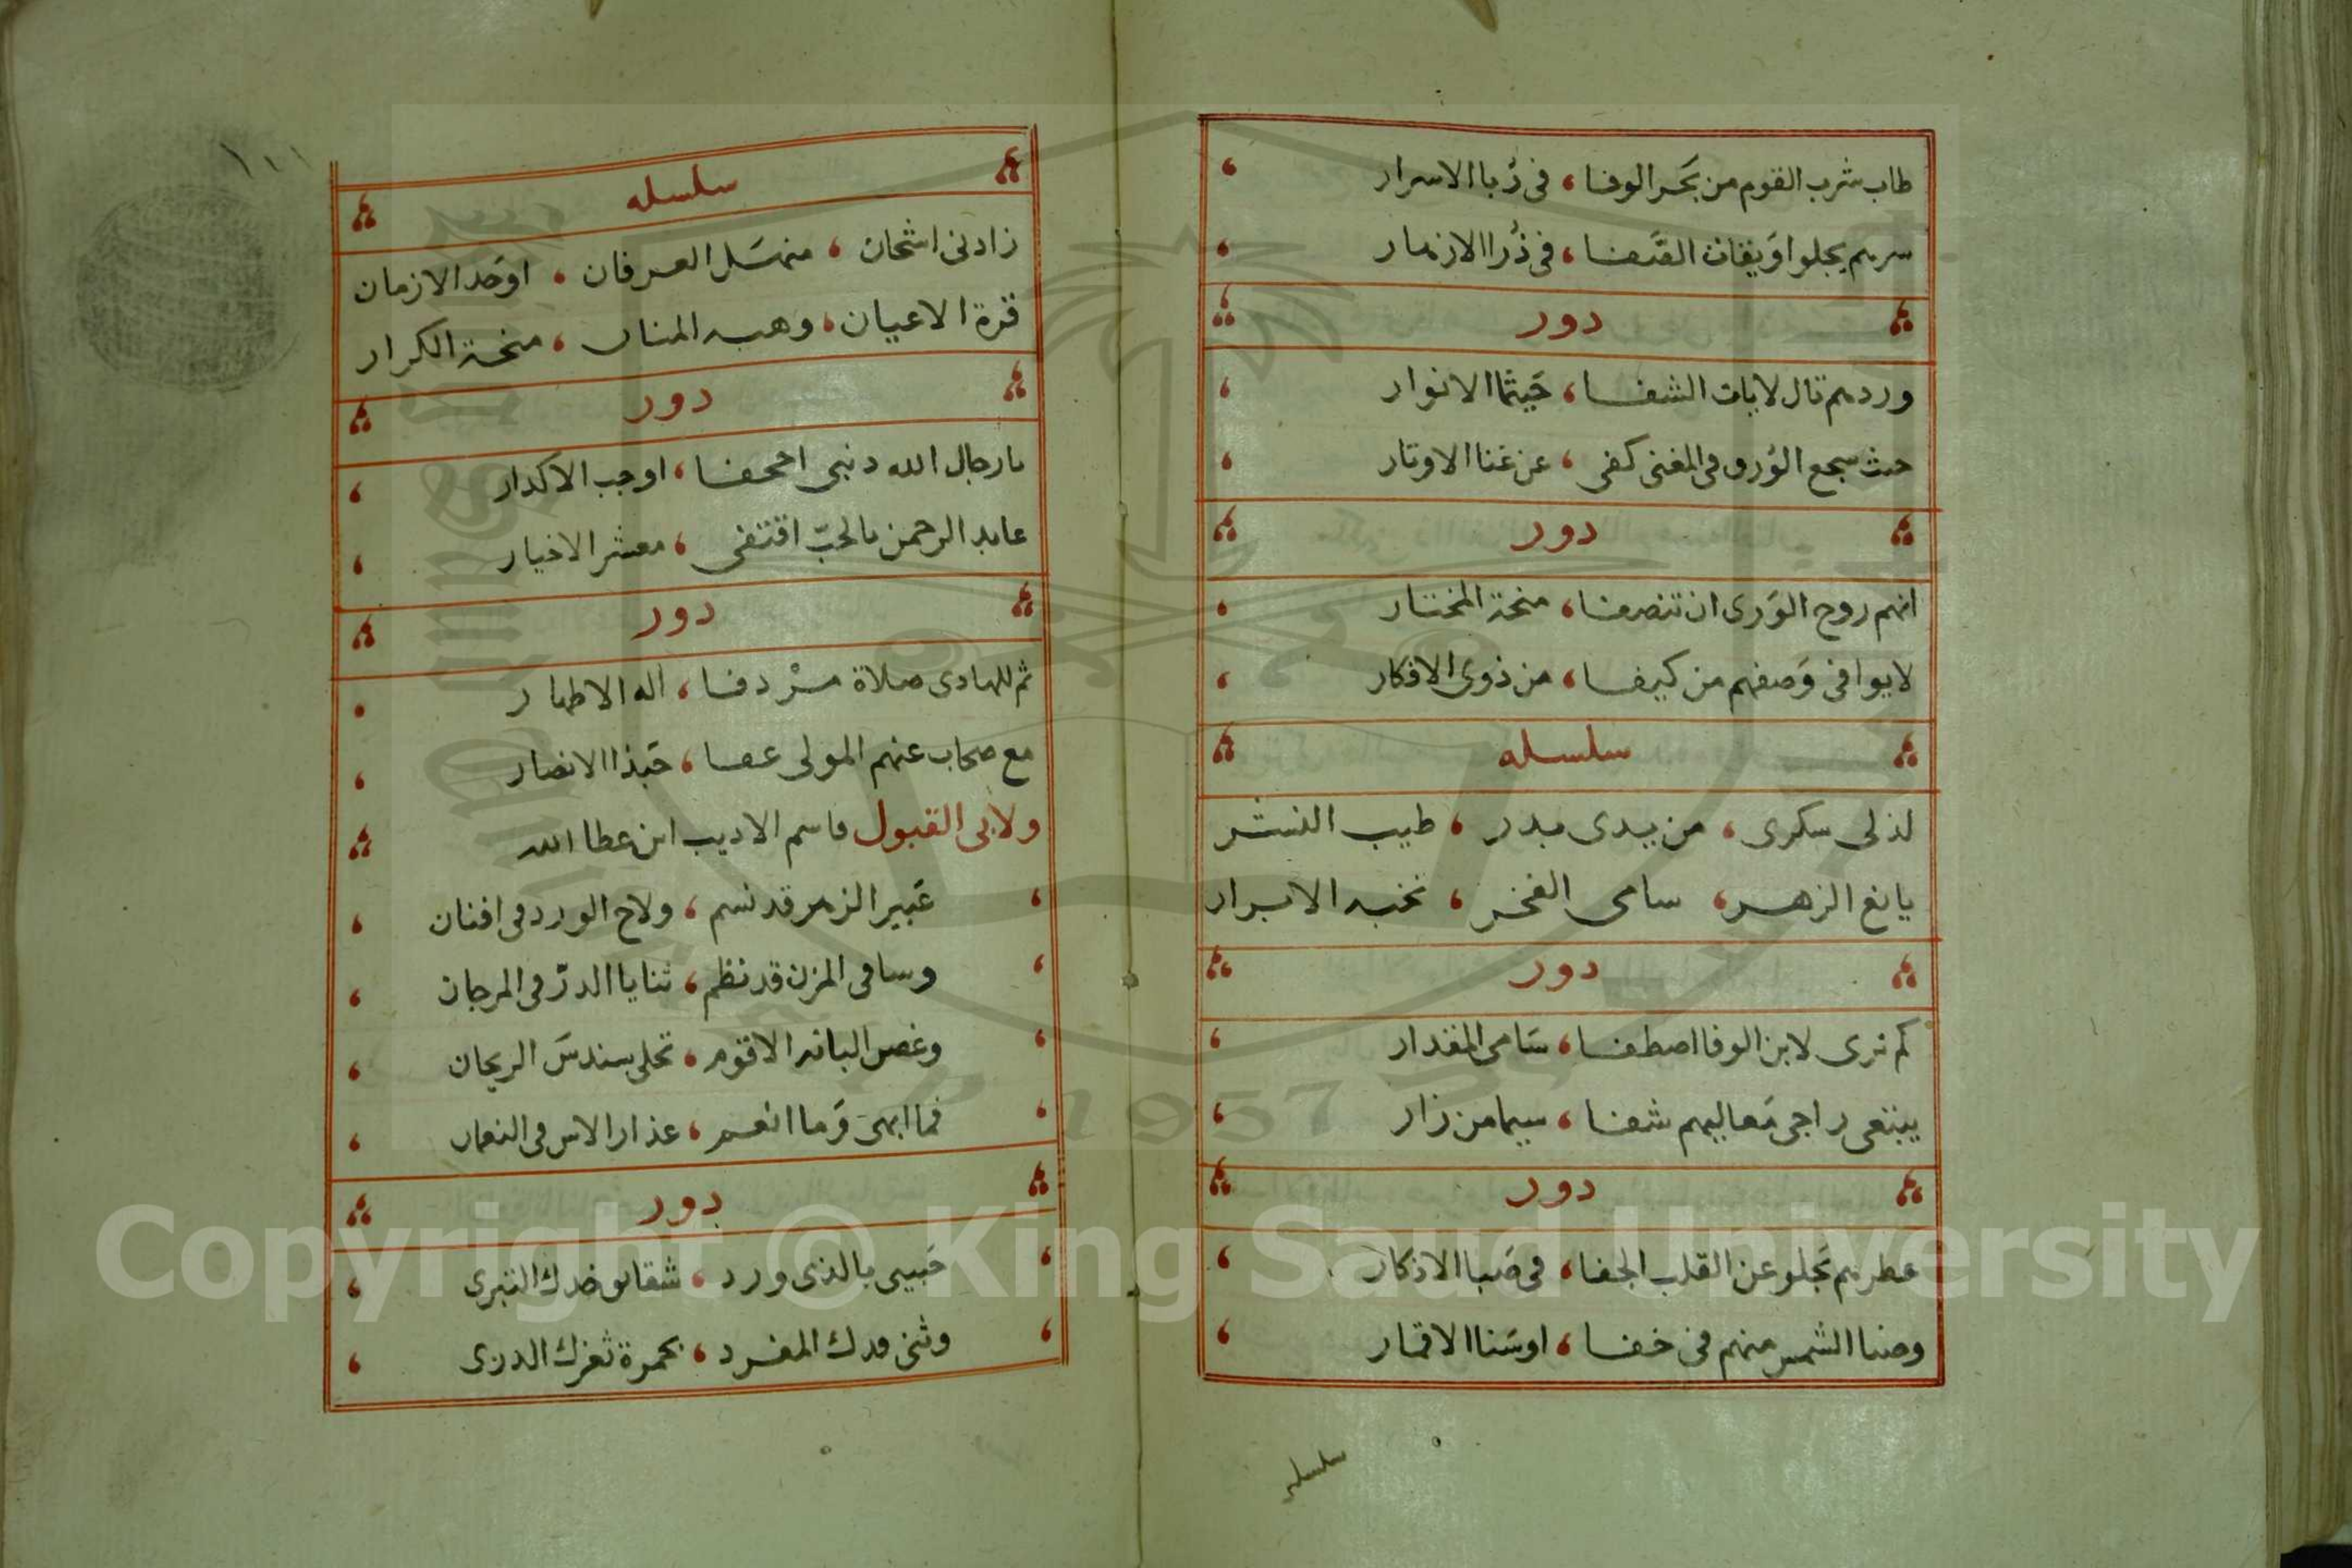 طاب شرب القوم من بَحر الوفا، فى رُبا الاسرار
سرهم يجلوا اوَيقات الصَّفا، فى ذُرا الازهار
دور
وردهم تال لايات الشفا، حَيثما الانوار
حيث سجع الوُرق فى المغنى كفى، عن غنا الاوتار
دور
انهم روح الوَرى ان تنصفا، منحة المختار
لا يوافى وَصفهم من كيفا، من ذوى الافكار
سلسله
لذ لى سكرى، من يدى بدر، طيب النشر
يانع الزهر، سامى الفخر، نخبه الابرار
دور
كم ترى لابن الوفا اصطفا، سَامى المقدار
يبتغى راجى مَعاليهم شفا، سيما من زار
دور
عطرهم يَجلو عن القلب الجفا، فى صَبا الاذكار
وضيا الشمس منهم فى خفا، او سَنا الاقمار
سلسله
سلسله
زادنى اشجان، منهَل العرفان، اوحَد الازمان
قرة الاعيان، وهبه المنان، منحة الكرار
دور
يا رجال الله دنبى اجحفا، اوجب الاكدار
عابد الرحمن بالحبّ اقتفى، معشر الاخيار
دور
ثم للهادى صلاة مسْردفا، اله الاطهار
مع صحاب عنهم المولى عفا، حَبذا الانصار
ولابى القبول قاسم الاديب ابن عطا الله
عَبير الزهر قد نسم، ولاح الورد فى افنان
وساقى المزن قد نظم، ثنايا الدرّ فى المرجان
وغصن البانه الاقوم، تحلى سندسَ الريحان
فما ابهىَ وَما انعم، عذار الاس فى النعمان
دور
حَبيبى بالذى ورد، شقايق خدك التبرى
وثنى قدك المفرد، بحمرة ثغرك الدرى
Copyright © King Saud University
1957